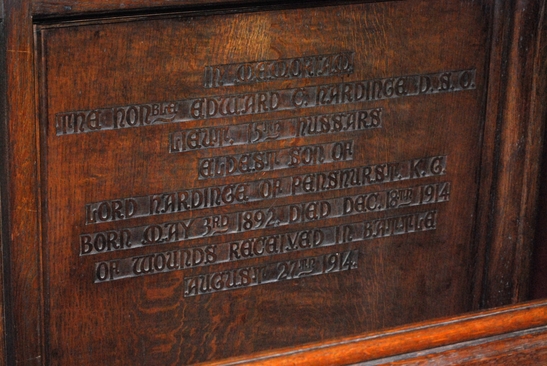 IN MEMORIAM
THE HONBLE EDWARD C. HARDINGE D.S.O.
LIEUT. 15TH HUSSARS
ELDEST SON OF
LORD HARDINGE OF PENSHURST. K.G.
BORN MAY 3RD 1892. DIED DEC. 18TH 1914
OF WOUNDS RECEIVED IN BATTLE
AUGUST 27TH 1914.